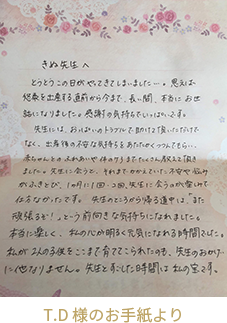 きぬ先生へ
とうとうこの日がやってきてしまいました…。思えば
悠奏を出産する直前から今まで、長い間、本当にお世
話になりました。感謝の気持ちでいっぱいです。
先生には、おっぱいのトラブルで助けて頂いただけで
なく、出産後の不安な気持ちをあたたかくつつんでもらい、
赤ちゃんとのふれあいや体の作り方までたくさん教えて頂き
ました。先生に会うと、それまでかかえていた不安や悩み
がふきとび、1ヶ月に1回・2回、先生に会うのが楽しみで
仕方なかったです。先生のところから帰る道中は「また
頑張るぞ!」という前向きな気持ちになれました。
本当に楽しく、私の心が明るく元気になれる時間でした。
私が2人の子供をここまで育ててこられたのも、先生のおかげ
に他なりません。先生と過した時間は私の宝です。
T.D 様のお手紙より